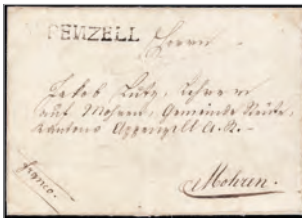 PENZELL
Herrn
Jakob Lutz, Lehrer
auf Mohren, Gemeinde Reute,
Kantons Appenzell A. R.
franco.
Mohren.